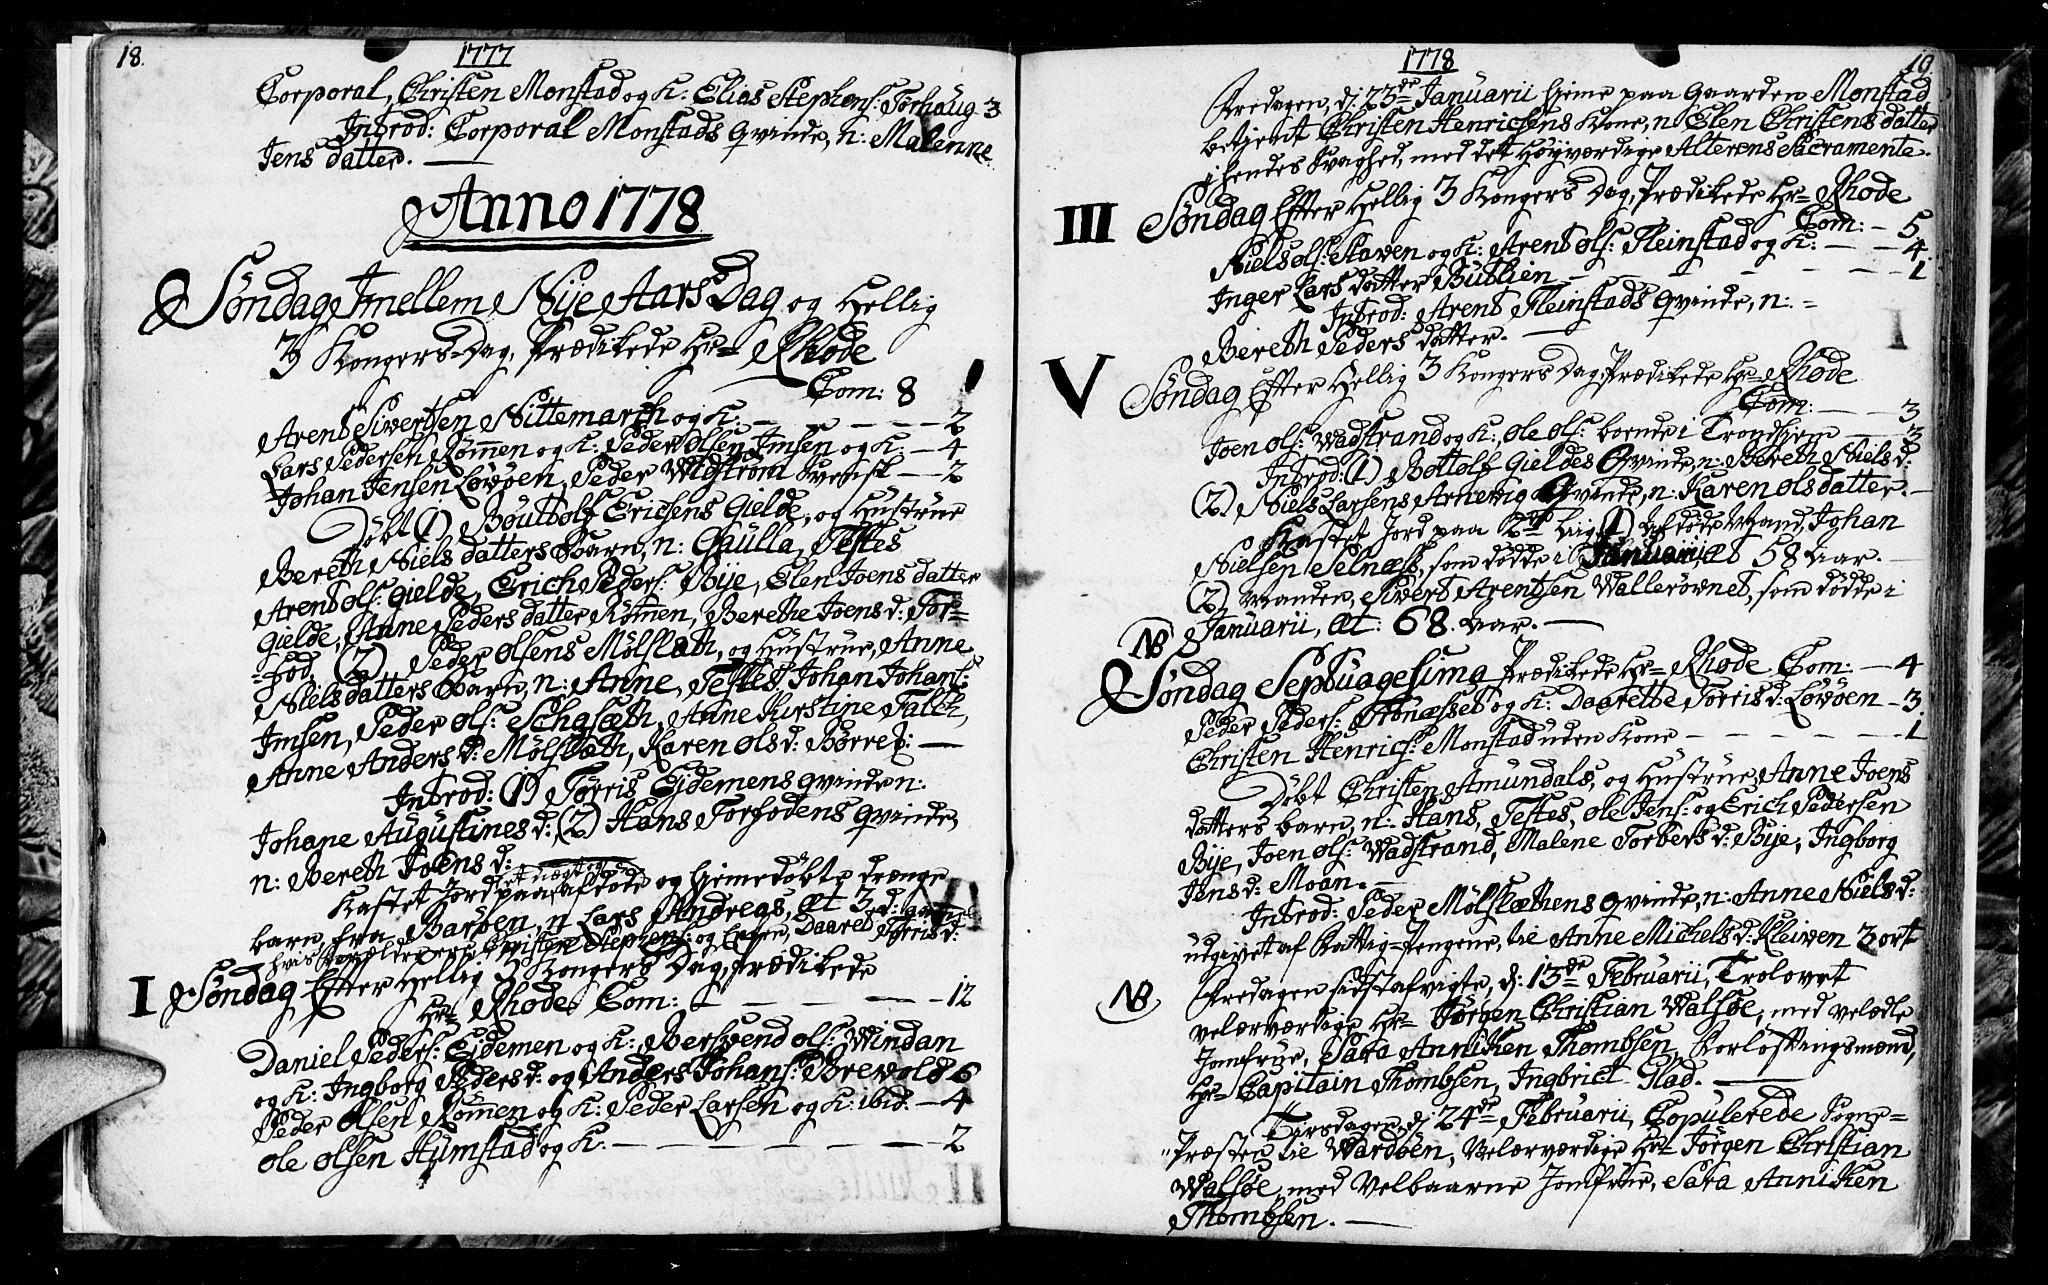 18.
1777
Corporal, Christen Monstad og K: Elias Stephens: Torhaug 3
Introd: Corporal Monstads Qvinde, n: Malenne
Jens datter.
Anno 1778
Søndag Imellem Nÿe Aars Dag og Hellig
3 Kongers-Dag, Prædikede Hr= Rhode
Com: 8
Arent Sivertsen Nittemarch og K: — 2
Lars Pedersen Rømmen og K: Peder Olsen Imsen og K. — 4
Johan Jensen Løvöen, Peder Widström Svensk — 2
Døbt (1) Boutolf Erichsens Gielde, og Hustrue
Bereth Niels datters Barn, n: Gaulla, Testes
Arent Ols: Gielde, Erich Peders: Bÿe, Elen Joens datter
Gielde, Anne Peders datter Rømmen, Berethe Joens d: Tor=
=hod, (2) Peder Olsens Mølslæth, og Hustrue, Anne
Nielsdatters Barn, n: Anne, Testes Johan Johans:
Imsen, Peder Ols: Schaslæth, Anne Kirstine Falch,
Anne Anders d: Mølslæth, Karen Ols d: Børret: —
Introd: (1) Tørris Eidemens Qvinde n:
Johane Augustines d: (2) Hans Torhodens Qvinde,
n: Bereth Joens d:
Kastet Jord paa afdøde og Hiemedøbte drænge
barn, fra Baröen, n: Lars Andreas, æt 3 d:
hvis Forældre ere Christen Stephens: og Daaret Tørris d:
I Søndag Efter Hellig 3 Kongers Dag, Prædikede
Hr= Rhode Com: — 12
Daniel Peders: Eidemen og K: Bersvend Ols: Windan
og K: Ingborg Peders d: og Anders Johans: Brevold 6
Peder Olsen Rømmen og K: Peder Larsen og K: ibid: — 4
Ole Olsen Humstad og K: — 2
1778
19.
Fredagen, d: 23de Januarii hieme paa Gaarden Monstad
betjent Christen Henrichsens Kone, n: Elen Christens datter
i hendes Svaghed, med det Høÿværdige Alterens Sacramente.
III Søndag Efter Hellig 3 Kongers Dag, Prædikede Hr= Rhode
Com: — 5
Niels Ols: Staven og K: Arent Ols: Fleinstad og K: — 4
Inger Lars datter Butlien — 1
Introd: Arent Fleinstads Qvinde, n: =
Bereth Peders datter. —
V Søndag Efter Hellig 3 Kongers Dag, Prædikede Hr= Rhode
Com: — 3
Joen Ols: Wadstrand og K: Ole Ols: boende i Trondhjem — 3
Introd: (1) Bottolf Gieldes Qvinde, n: Bereth Niels d:
(2) Niels Larsens Arnevig Qvinde, n: Karen Ols datter. —
Kastet Jord paa 2de Liig (1) afdøde Mand, Johan
Nielsen Selnæss, som døde i Januarii, æt 58 Aar. —
(2) Manden, Sivert Arentsen Wallerövnet, som døde i
Januarii, æt: 68. Aar. —
NB
Søndag Septuagesima Prædikede Hr= Rhode Com: — 4
Peder Peders: Trönæsset og K: Daarette Tørris d: Lövöen — 3
Christen Henrichs: Monstad uden Kone — 1
Døbt Christen Amundals, og Hustrue, Anne Joens
datters barn, n: Hans, Testes, Ole Jens: og Erich Pedersen
Bÿe, Joen Ols: Wadstrand, Malene Torbers d: Bÿe, Ingborg
Jens d: Moan. —
Introd: Peder Mølslæthens Qvinde, n: Anne Niels d:
udgivet af Fattig=Pengene, til Anne Michels d: Kleiven 3 ort
NB Fredagen sidst afvigte, d: 13de Februarii, Trolovet
velærværdige Hr= Jörgen Christian Walsøe, med velædle
Jomfrue, Sara Anniken Thombsen, Forlofningsmænd,
Hr= Capitain Thombsen, Ingbrict Glad. —
Tirsdagen d: 24de Februarii, Copulerede Sogne=
Præsten til Wardöen, Velærværdige Hr= Jörgen Christian
Walsøe, med Velbaarne Jomfrue, Sara Anniken
Thombsen. —